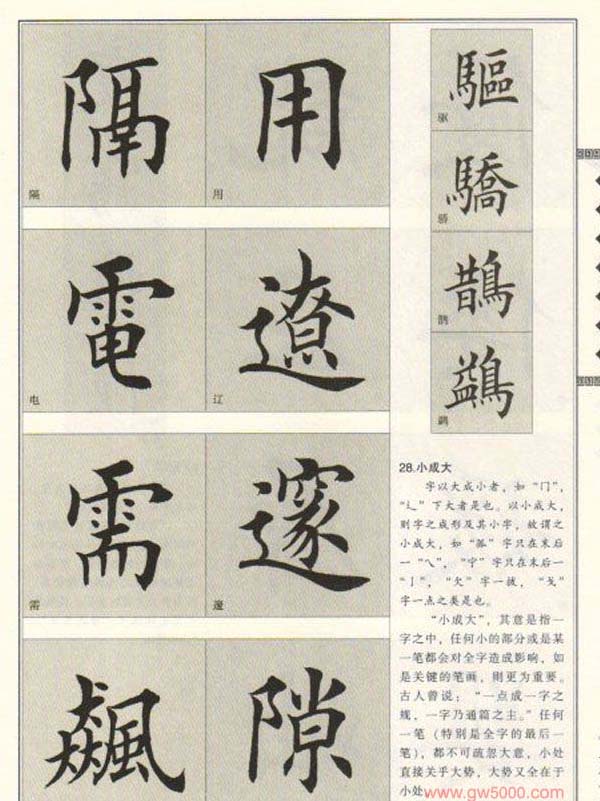 隔 用
隔 用
電 遼
电 辽
需 邃
需 邃
飆 隙
驅
驱
驕
骄
鵲
鹊
鷁
鹢
28.小成大
字以大成小者，如“冂”，
“辶”下大者是也。以小成大，
则字之成形及其小字，故谓之
小成大，如“孤”字只在末后
一“乀”，“宁”字只在末后一
“亅”，“欠”字一拔，“戈”
字一点之类是也。
“小成大”，其意是指一
字之中，任何小的部分或是某
一笔都会对全字造成影响，如
是关键的笔画，则更为重要。
古人曾说：“一点成一字之
规，一字乃通篇之主。”任何
一笔（特别是全字的最后一
笔），都不可疏忽大意，小处
直接关乎大势，大势又全在于
小处
www.gw5000.com